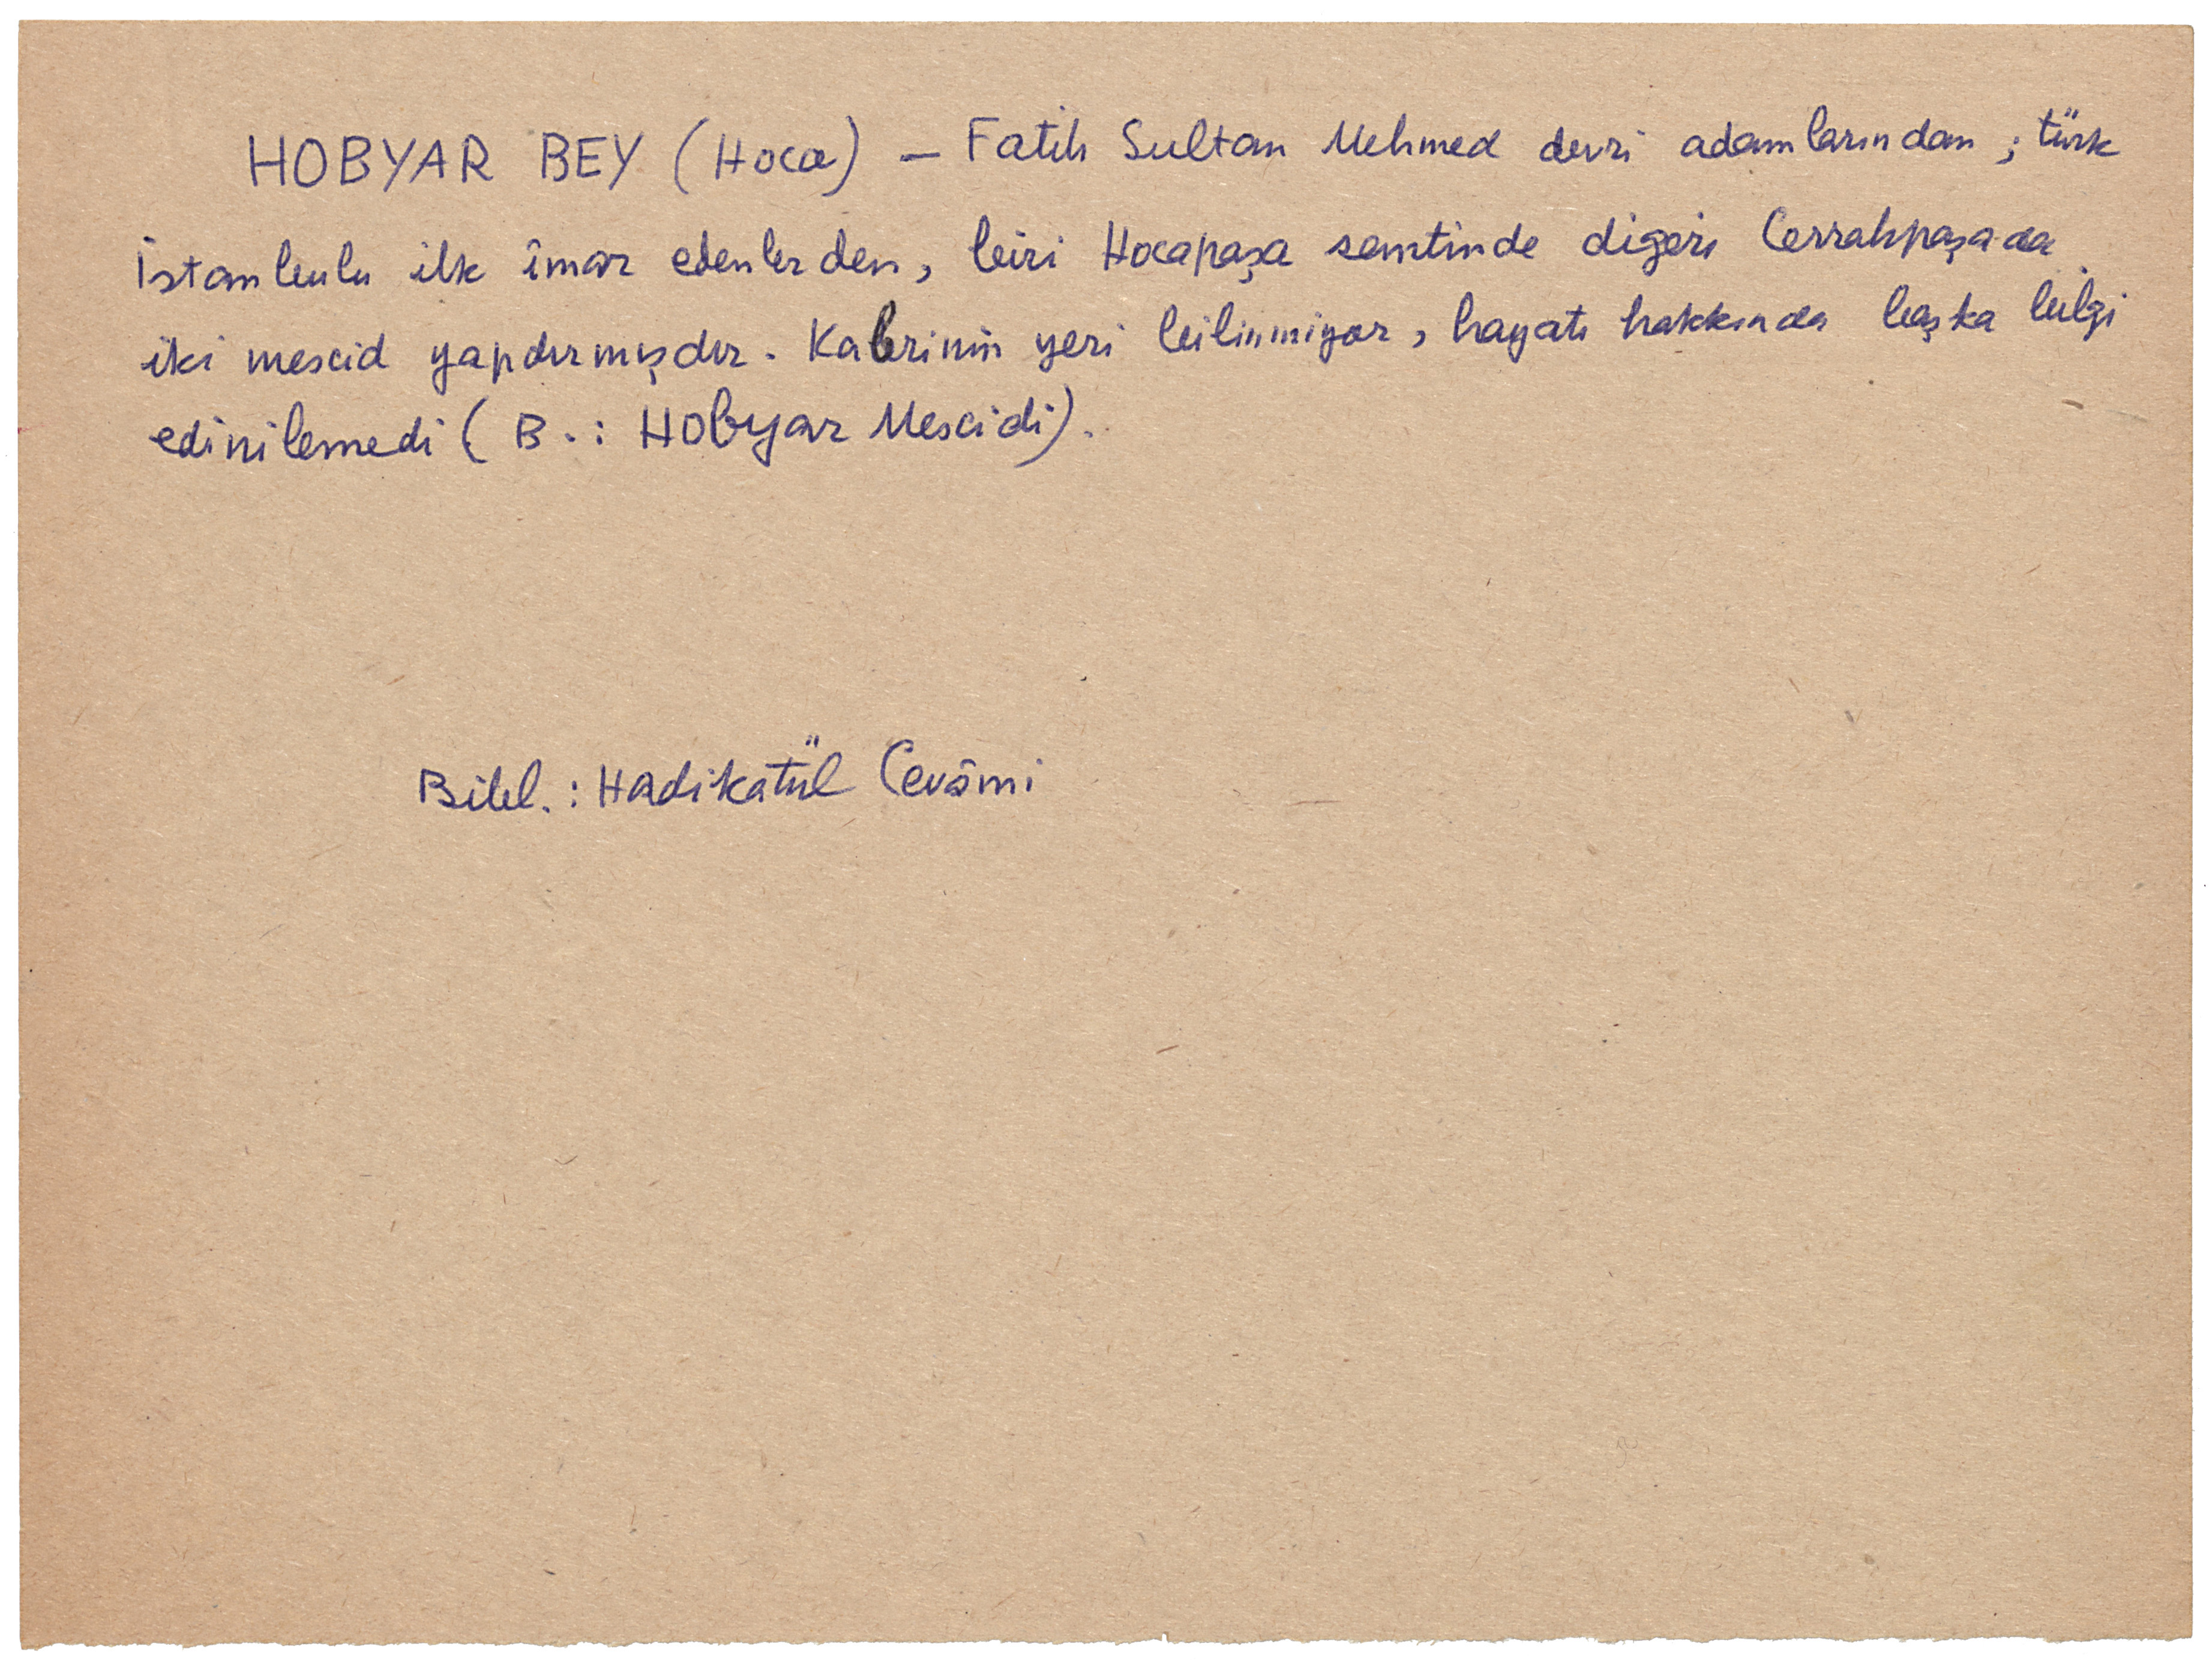 HOBYAR BEY (Hoca) — Fatih Sultan Mehmed devri adamlarından; türk
İstanbulu ilk îmar edenlerden, biri Hocapaşa semtinde digeri Cerrahpaşada
iki mescid yapdırmışdır. Kabrinin yeri bilinmiyor, hayatı hakkında başka bilgi
edinilemedi (B.: Hobyar Mescidi).
Bibl.: Hadikatül Cevâmi